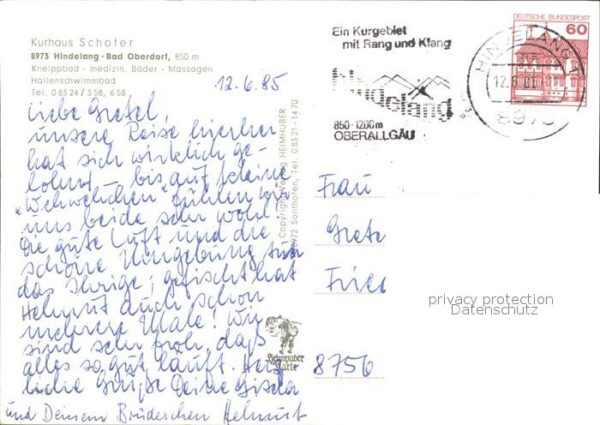 Kurhaus Schofer
8973 Hindelang-Bad Oberdorf, 850 m
Kneippbad - medizin. Bäder - Massagen
Hallenschwimmbad
Tel. 08324/358, 658
12.6.85
Liebe Gretel,
unsere Reise hierher
hat sich wirklich ge-
lohnt - bis auf kleine
"Wehwehchen" fühlen wir
uns beide sehr wohl.
Die gute Luft und die
schöne Umgebung tun
das Ihrige; gefischt hat
Helmut auch schon
mehrere Male! Wir
sind sehr froh, daß
alles so gut läuft. Herz-
liche Grüße Deine Gisela
und Deinem Brüderchen Helmut
Copyright Verlag HEIMHUBER
8972 Sonthofen, Tel. 08321-1470
Heimhuber
Karte
Ein Kurgebiet
mit Rang und Klang
hindelang
850-1200m
OBERALLGÄU
DEUTSCHE BUNDESPOST
60
HINDELANG 1
12.6.
897
Frau
Frie
8756
privacy protection
Datenschutz